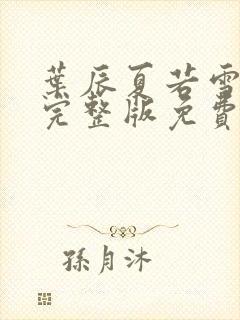 葉辰夏若雪
完整版免費
孫月沐